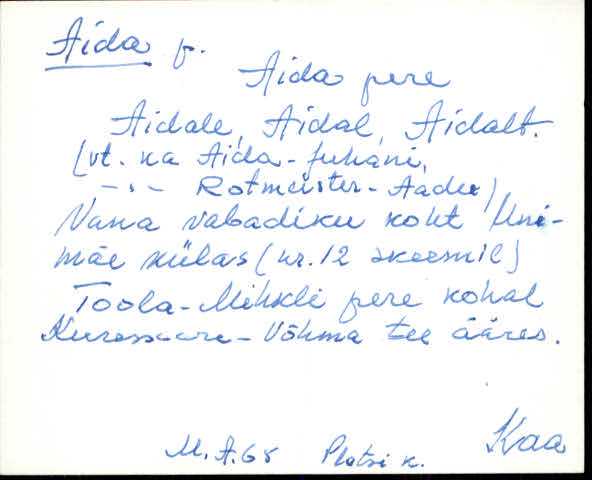 Aida p.
Aida pere
Aidale, Aidal, Aidalt.
(vt. ka Aida-Juhani,
-"- Rotmeister-Aadu)
Vana vabadiku koht Uni-
mäe külas (nr. 12 skeemil)
Toola-Mihkli pere kohal
Kuressaare-Võhma tee ääres.
Kaa
M.A.68 Platsi k.